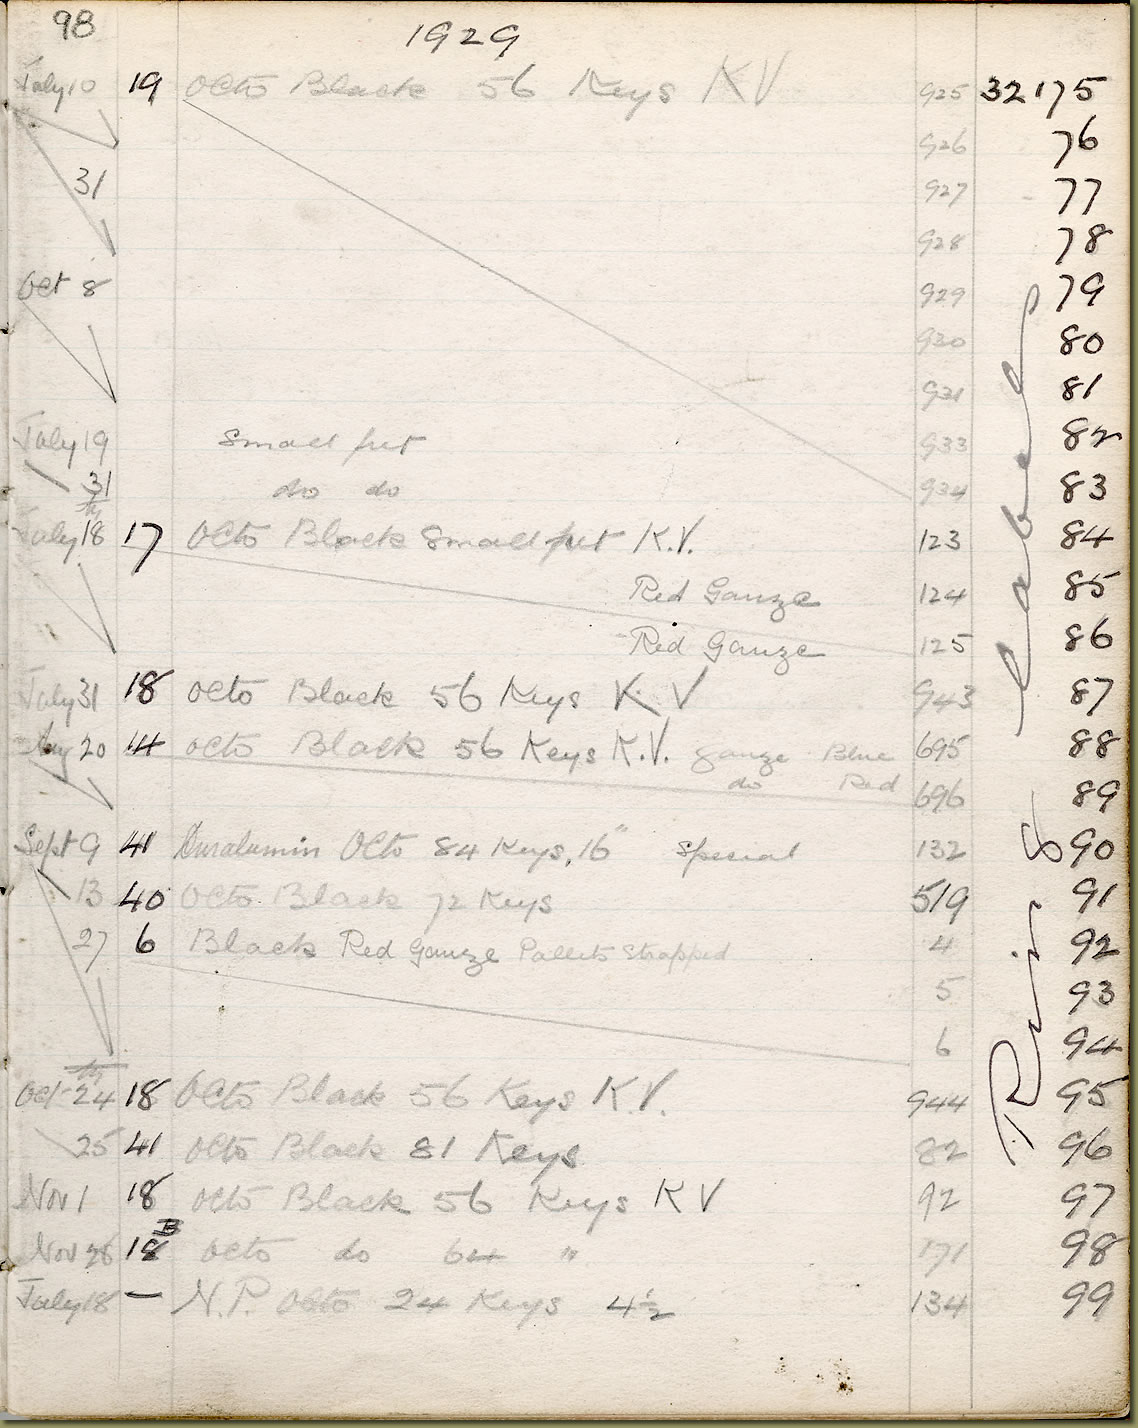 98
1929
July 10 19 Octo Black 56 Keys KV 925 32175
926 76
31 927 77
928 78
Oct 8 929 79
930 80
931 81
July 19 Small fret 933 82
31 do do 934 83
July 18 17 Octo Black Small fret K.V. 123 84
Red Gauze 124 85
Red Gauze 125 86
July 31 18 Octo Black 56 Keys K.V 943 87
Aug 20 14 Octo Black 56 Keys K.V. Gauze Blue 695 88
do Red 696 89
Sept 9 41 Duralumin Octo 84 Keys, 16" Special 132 90
13 40 Octo Black 72 Keys 519 91
27 6 Black Red Gauze Pallets Strapped 4 92
5 93
6 94
Oct 24 18 Octo Black 56 Keys K.V. 944 95
25 41 Octo Black 81 Keys 82 96
Nov 1 18 Octo Black 56 Keys KV 92 97
Nov 28 18B Octo do 64 " 171 98
July 18 — N.P. Octo 24 Keys 4½ 134 99
Label